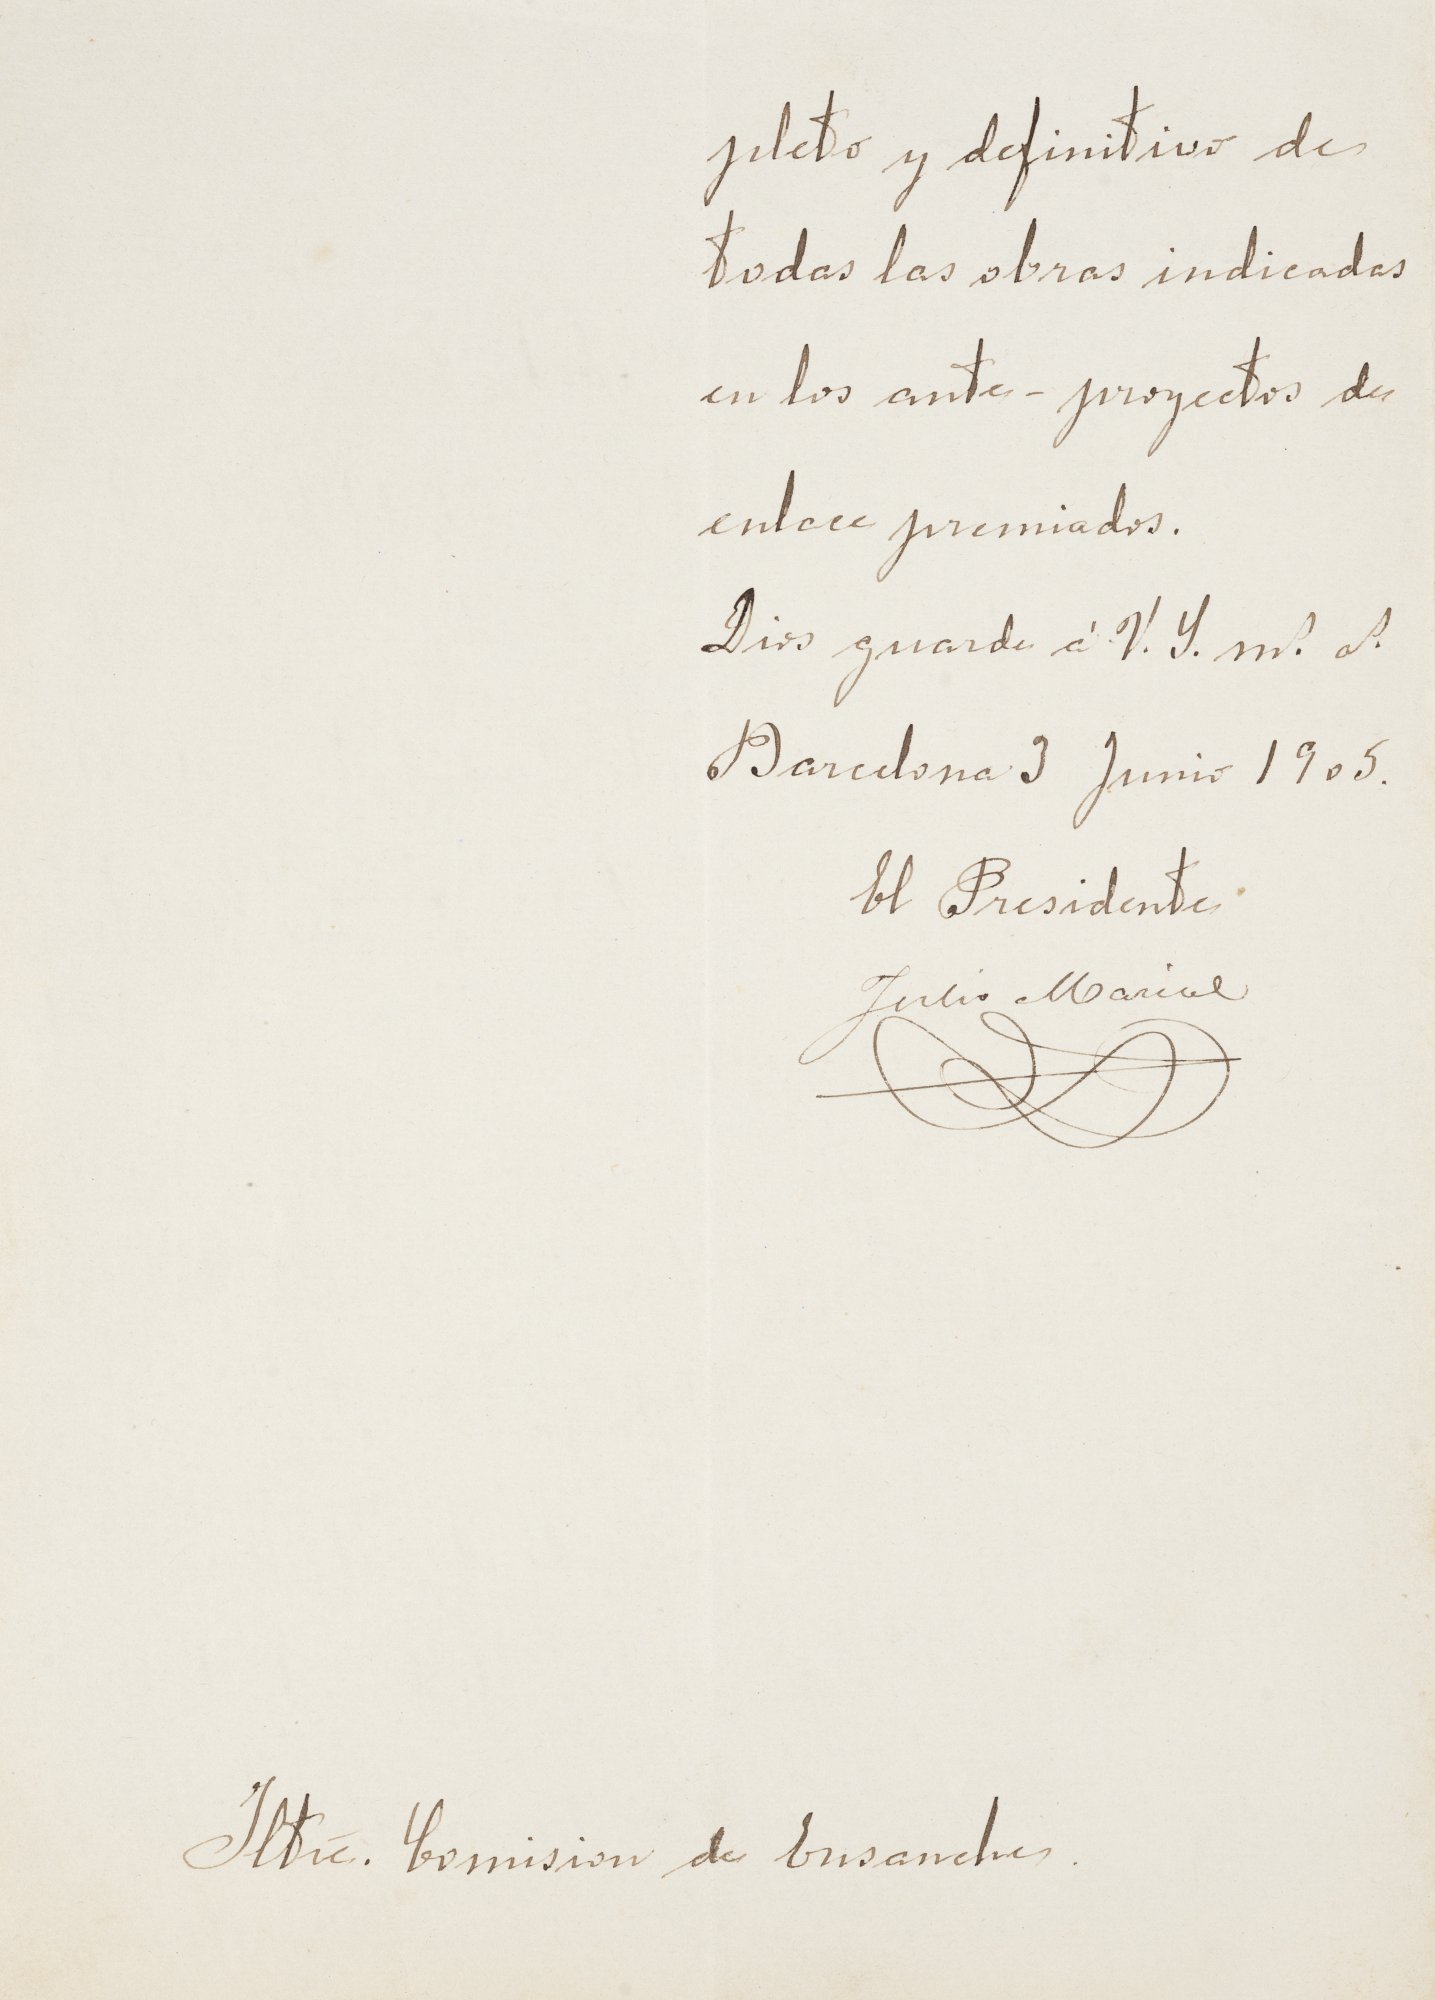 pleto y definitivo de
todas las obras indicadas
en los ante-proyectos de
enlace premiados.
Dios guarde á V. Y. mˢ. aˢ.
Barcelona 3 Junio 1905.
El Presidente
Julio Marial
Iltre. Comision de Ensanche.